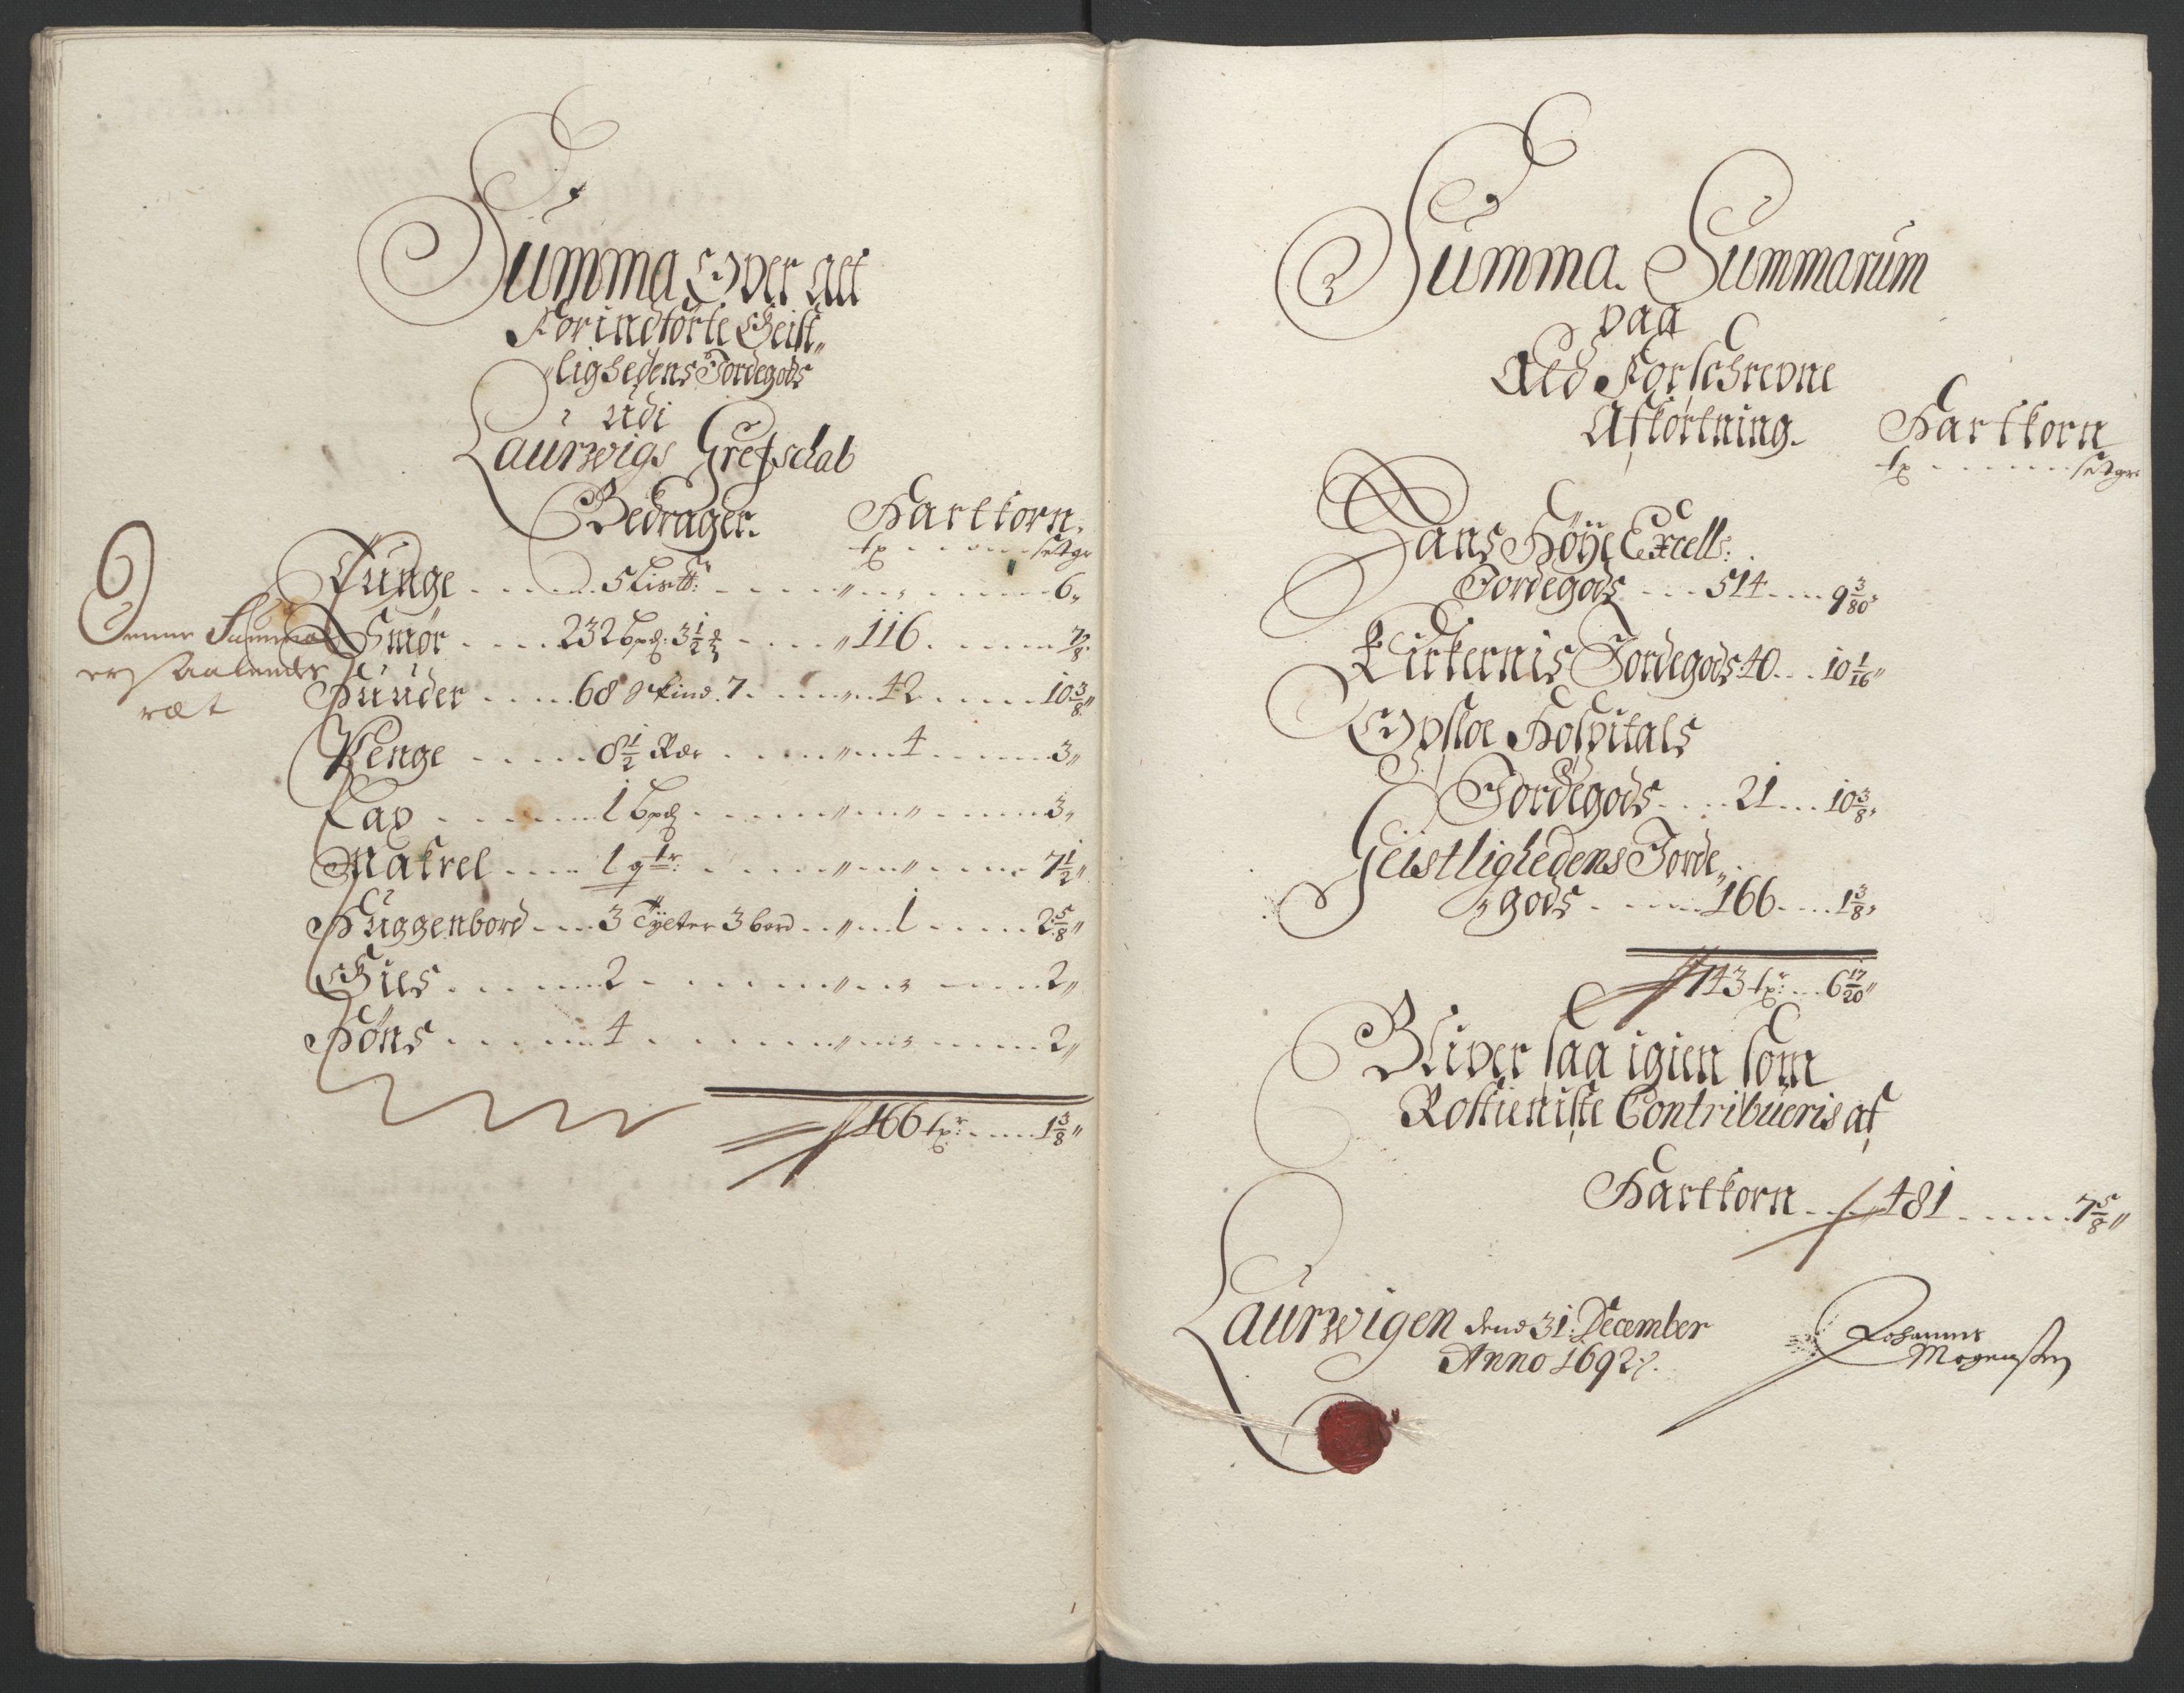 Summa Over alt
Forindførte Geist„
„lighedens Jordegods
udi
Laurwigs Grefschab
Bedrager. Hartkorn.
tr ..... setgr
Tunge ..... 5 Lis℔: ..... „ ..... 6„
Smør ..... 232 bpd: 3 1/2 ..... „116 ..... 7/8„
Huuder ..... 68 Skind. 7 ..... „ 42 ..... 10 3/8„
Penge ..... 8 1/2 Rdr ..... „ 4 ..... 3„
Lax ..... 1 bpd ..... „ „ ..... 3„
Makrel ..... 1 qtr: ..... „ „ ..... 7 1/2„
Huggenbord ..... 3 Tylter 3 bord ..... „ 1 ..... 2 5/8„
Gies ..... 2 ..... „ „ ..... 2„
Høns ..... 4 ..... „ „ ..... 2„
166 tr: ..... 1 3/8„
Denne Summa
er saaledes
ræt
Summa Summarum
paa
Ald Forschrevne
Afkortning. Hartkorn
tr ..... setgr
Hans Høye Excell:
Jordegods ..... 514 ..... 9 3/80„
Kirkernis Jordegods 40 ... 10 1/16„
Opsloe Hospitals
Jordegods ..... 21 ... 10 3/8„
Geistlighedens Jorde„
„gods ..... 166 ..... 1 3/8„
743 tr: ... 6 17/20„
Bliver saa igien som
Rostieniste Contribueris af
Hartkorn ..... 481 ..... 7 5/8„
Laurwigen dend 31: December
Anno 1692
Johannes
Mogensen